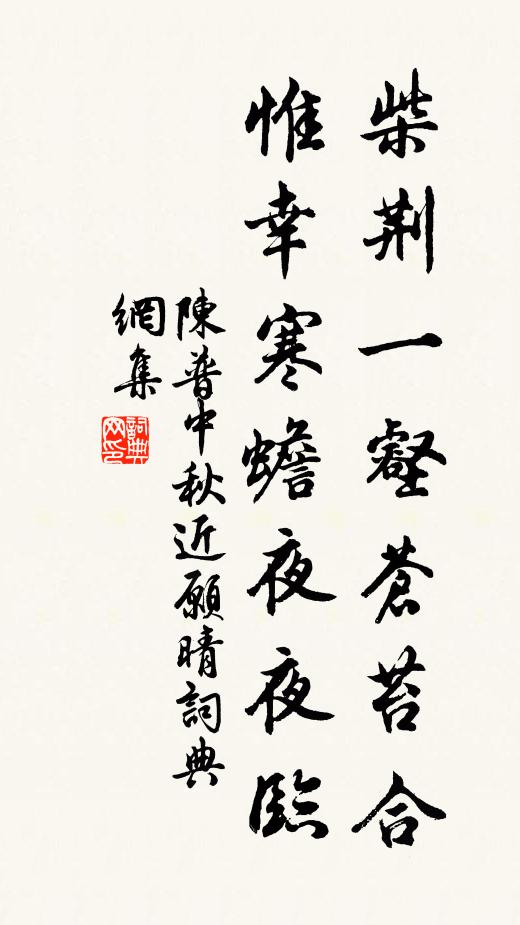 柴荆一壑蒼苔合
惟幸寒蟾夜夜臨
陳普中秋近願晴詞典
網集
詞典
网印